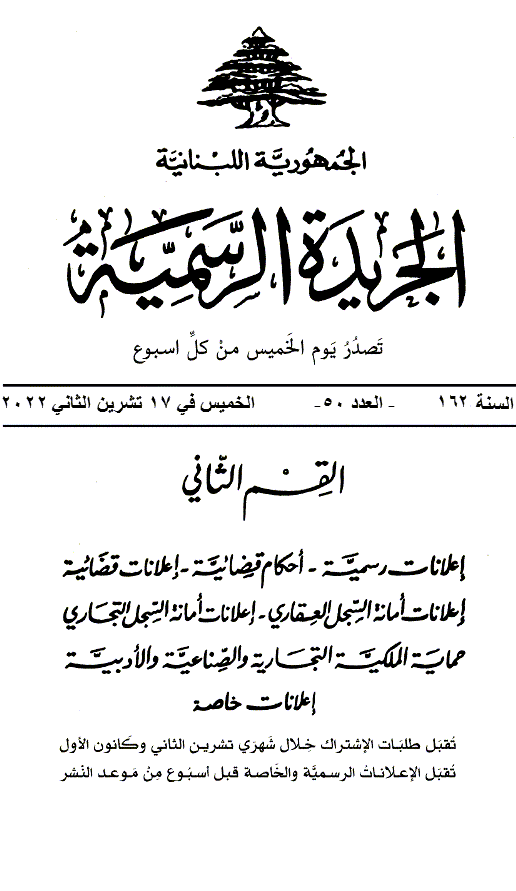 الجمهوريَّة اللبْنانيَّة
الجَريدَة الرَّسمِيَّة
تَصدُرُ يَوم الخَميس منْ كلِّ اسبوع
السنة ١٦٢ - العدد ٥٠- الخميس في ١٧ تشرين الثاني ٢٠٢٢
القِسْم الثّاني
إعلانات رسميَّة - أحكام قضائيَّة - إعلانات قضائية
إعلانات أمانة السِّجل العِقاري - إعلانات أمانة السِّجل التجاري
حماية الملكيَّة التجارية والصِّناعيَّة والأدبيَّة
إعلانات خاصة
تُقبَل طلبَات الإشتراك خِلال شَهرَي تشرين الثاني وكَانون الأول
تُقبَل الإعلاناتُ الرسميَّة والخَاصة قبل أسبُوع مِنْ مَوعد النَشر